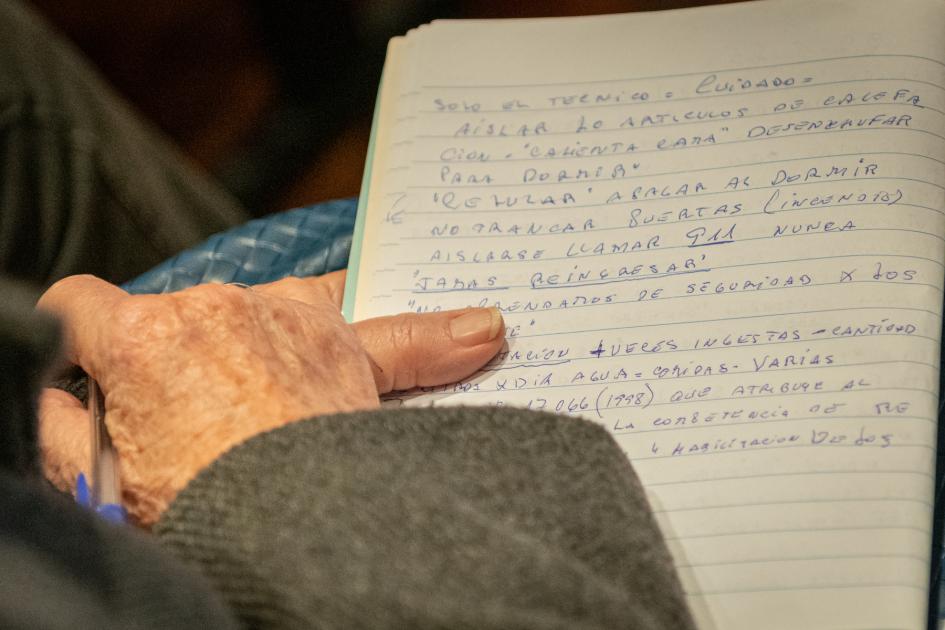 SOLO EL TECNICO = CUIDADO =
AÍSLAR LO ARTICULOS DE CALEFA
CION - "CALIENTA CAMA" DESENCHUFAR
PARA DORMIR"
APAGAR AL DORMIR
NO TRANCAR PUERTAS (INCENDIO)
AISLARSE LLAMAR 911 NUNCA
"JAMAS REINGRESAR"
DE SEGURIDAD X LOS
TE"
TACION 4 VECES INGESTAS - CANTIDAD
X DIA AGUA = COMIDAS - VARIAS
17.066 (1998) QUE ATRIBUYE AL
LA COMPETENCIA DE
HABILITACION DE LOS